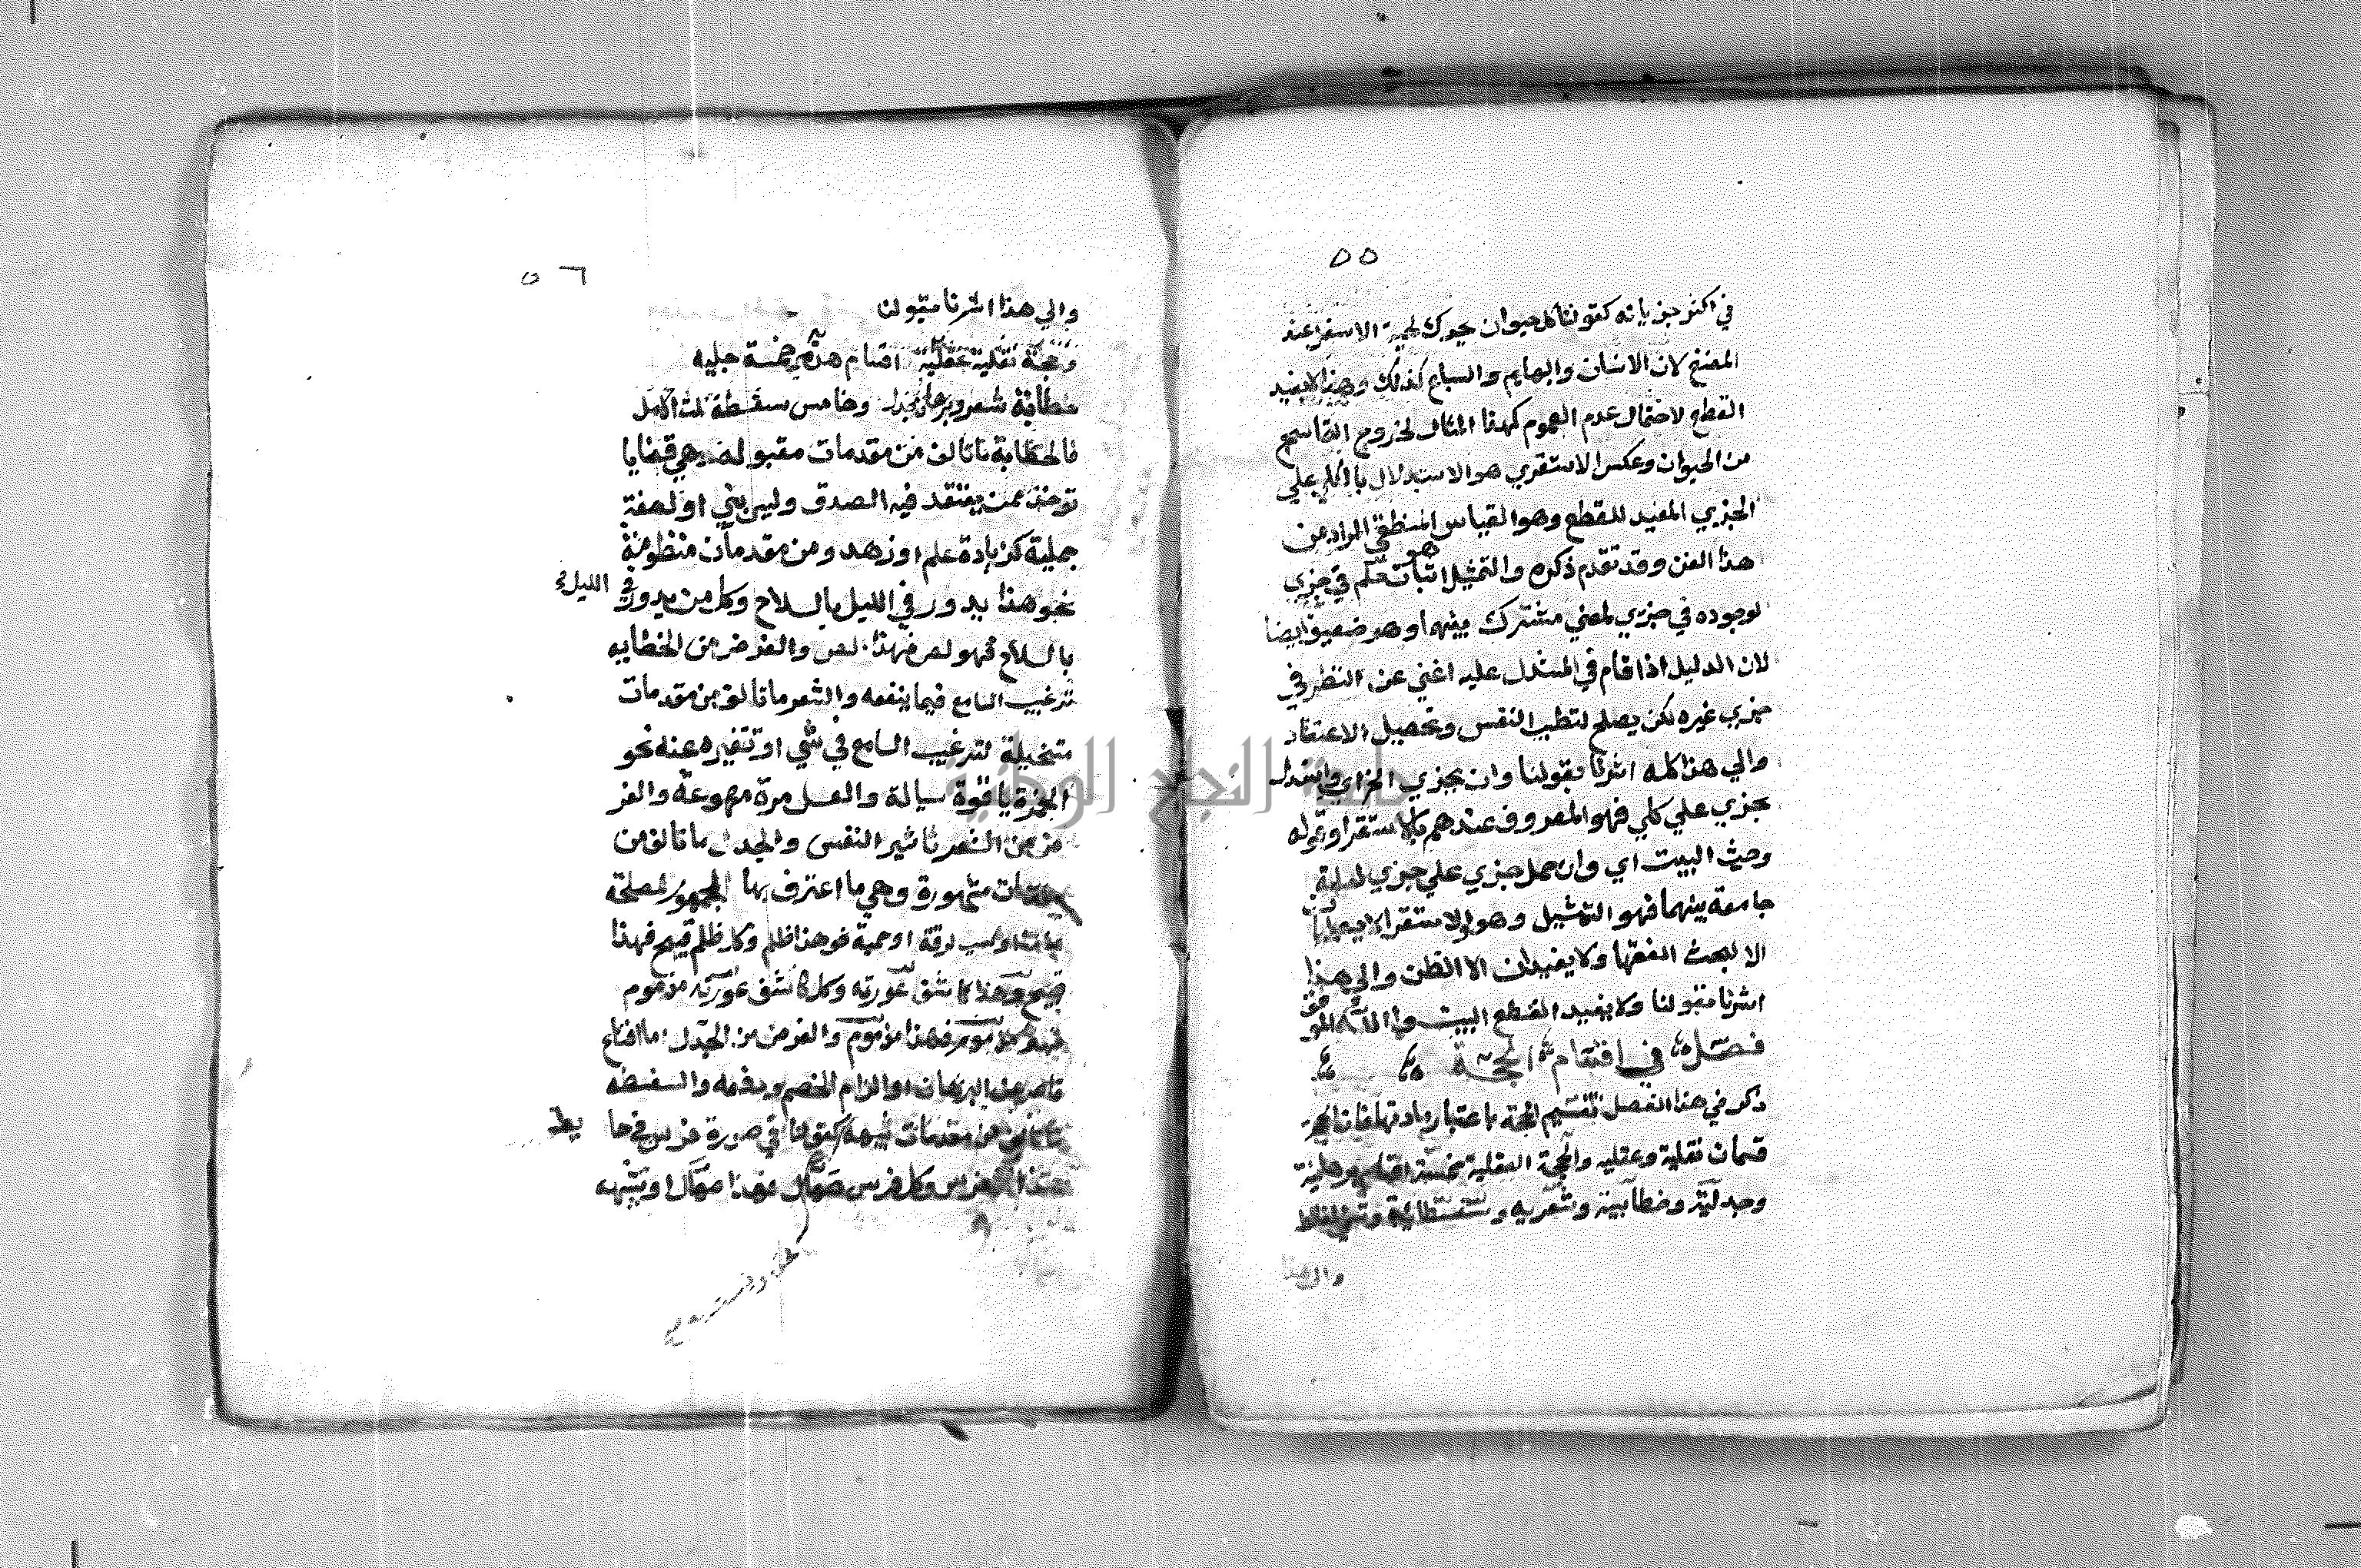 ٥٥
في اكثر جزياته كقولنا كل حيوان يحرك لحيه الاسفل عند
المضغ لان الانسان والبهايم والسباع كذلك وهذا لا يفيد
القطع لاحتمال عدم العموم كهذا المثال لخروج التماسح
من الحيوان وعكس الاستقري هو الاستدلال بالكلي علي
الجزي المفيد للقطع وهو القياس المنطقي المراد من
هذا الفن وقد تقدم ذكره والتمثيل اثبات حكم في جزي
لوجوده في جزي لمعني مشترك بينهما وهو ضعيف ايضا
لان الدليل اذا قام في المستدل عليه اغني عن النظر في
جزي غيره لكن يصلح لتطيب النفس وتحصيل الاعتقاد
والي هذا كله اشرنا بقولنا وان بجزي الخ اي وان استدل
بجزي علي كلي فهو المعروف عندهم بالاستقرا وقوله
وحيث البيت اي وان حمل جزي علي جزي لعلة
جامعة بينهما فهو التمثيل وهو والاستقرا لا
الا لبحث الفقها ولا يفيدان الا الظن والي هذا
اشرنا بقولنا ولا يفيد القطع البيت والله الموفق
فصل في اقسام الحجة
ذكر في هذا الفصل تقسيم الحجة باعتبار مادتها فان الحجة
قسمان نقلية وعقليه والحجة العقلية خمسة اقسام برهانية
وجدلية وخطابية وشعريه وسفسطائية وتسمي المغالطة
والي هذا
٥٦
والي هذا اشرنا بقولنا
وحجة نقلية عقلية اقسام هذي خمسة جليه
خطابة شعر وبرهان جدل وخامس سفسطة نلت الامل
فالخطابة ما تالف من مقدمات مقبولة وهي قضايا
توخذ ممن يعتقد فيه الصدق وليس بنبي او لصفة
جميلة كزيادة علم او زهد ومن مقدمات مظنونة
نحو هذا يدور في الليل بالسلاح وكل من يدور في الليل
بالسلاح فهو لص فهذا لص والغرض من الخطابه
ترغيب السامع فيما ينفعه والشعر ما تالف من مقدمات
متخيلة لترغيب السامع في شي او تنفيره عنه نحو
الخمرة ياقوتة سيالة والعسل مرة مهوعة والغر
ض من الشعر تاثير النفس والجدل ما تالف من
مقدمات مشهورة وهي ما اعترف بها الجمهور لمصلحة
عامة او بسبب لرقة او حمية نحو هذا ظلم وكل ظلم قبيح فهذا
قبيح وهذا كاشف عورته وكل كاشف عورته مذموم
فهذا مذموم والغرض من الجدل اما اقناع
قاصر عن البرهان او الزام الخصم ودفعه والسفسطه
ما تالف من مقدمات شبيهة كقولنا في صورة فرس في حايط
هذا فرس وكل فرس صهال فهذا صهال او شبيهه